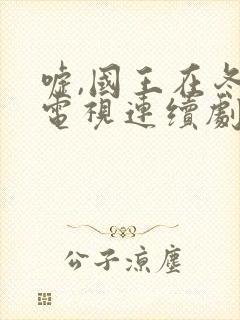 嘘,國王在冬
電視連續劇
公子涼塵